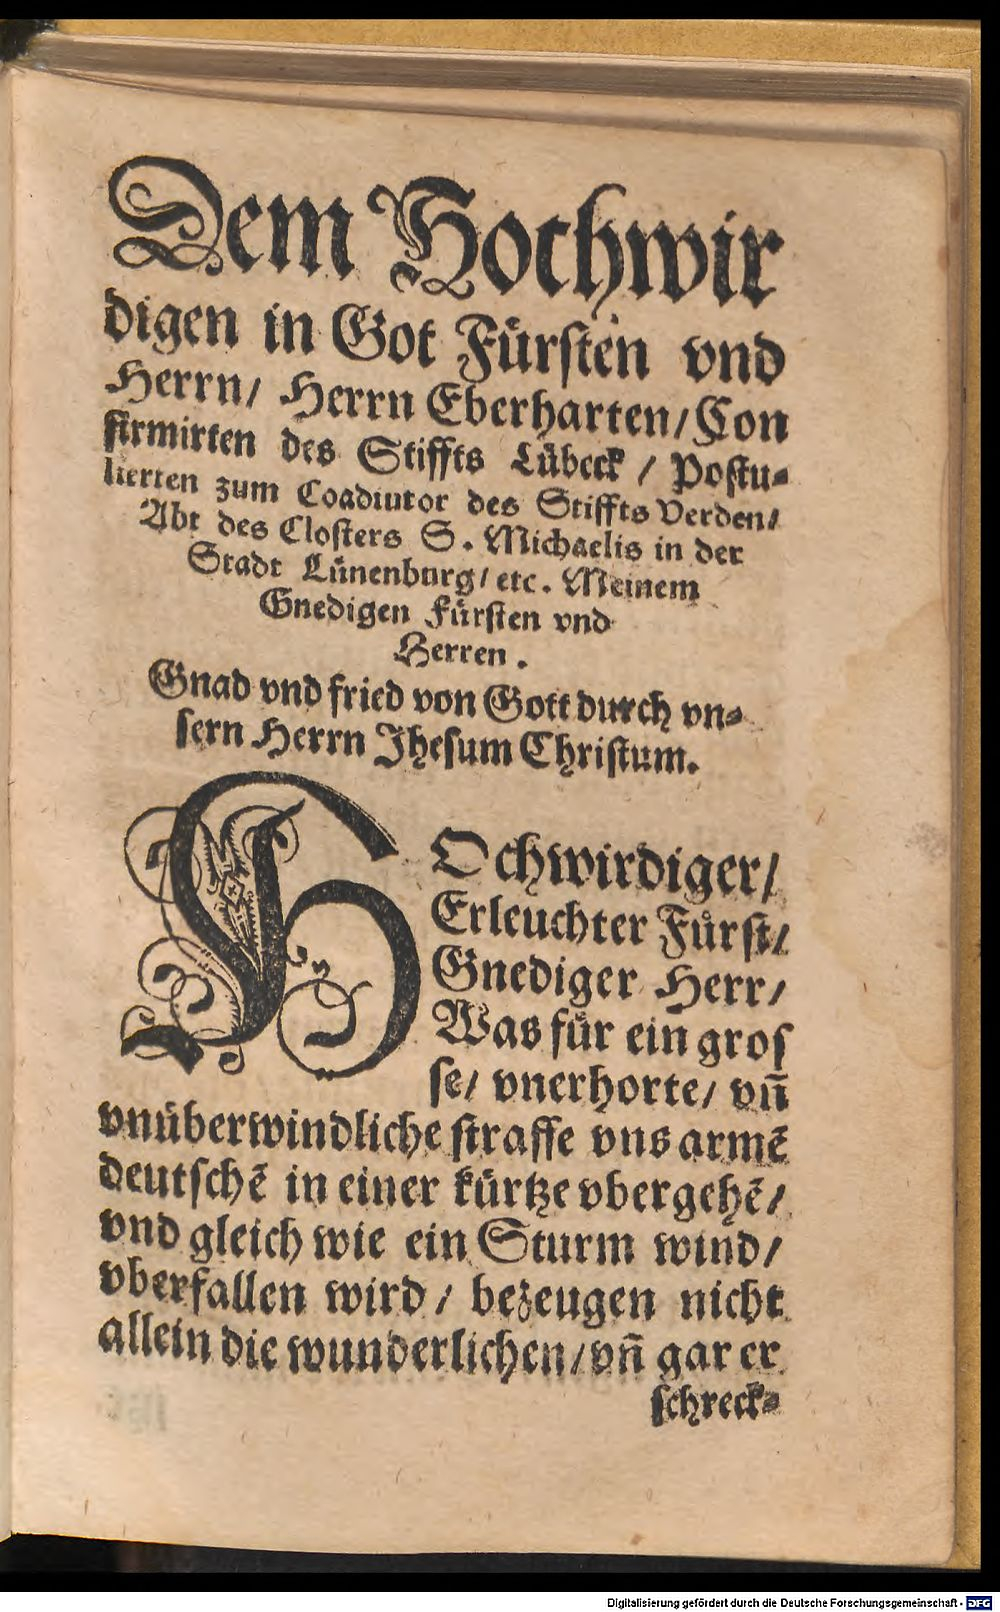 Dem Hochwir
digen in Got Fürsten vnd
Herrn/ Herrn Eberharten/ Con
firmirten des Stiffts Lübeck / Postu-
lierten zum Coadiutor des Stiffts Verden/
Abt des Closters S. Michaelis in der
Stadt Lünenburg/ etc. Meinem
Gnedigen Fürsten vnd
Herren.
Gnad vnd fried von Gott durch vn-
sern Herrn Jhesum Christum.
HOchwirdiger/
Erleuchter Fürst/
Gnediger Herr/
Was für ein gros
se/ vnerhorte/ vñ
vnüberwindliche straffe vns armẽ
deutschẽ in einer kürtze vbergehẽ/
vnd gleich wie ein Sturm wind/
vberfallen wird/ bezeugen nicht
allein die wunderlichen/ vñ gar er
schreck-
Digitalisierung gefördert durch die Deutsche Forschungsgemeinschaft - DFG